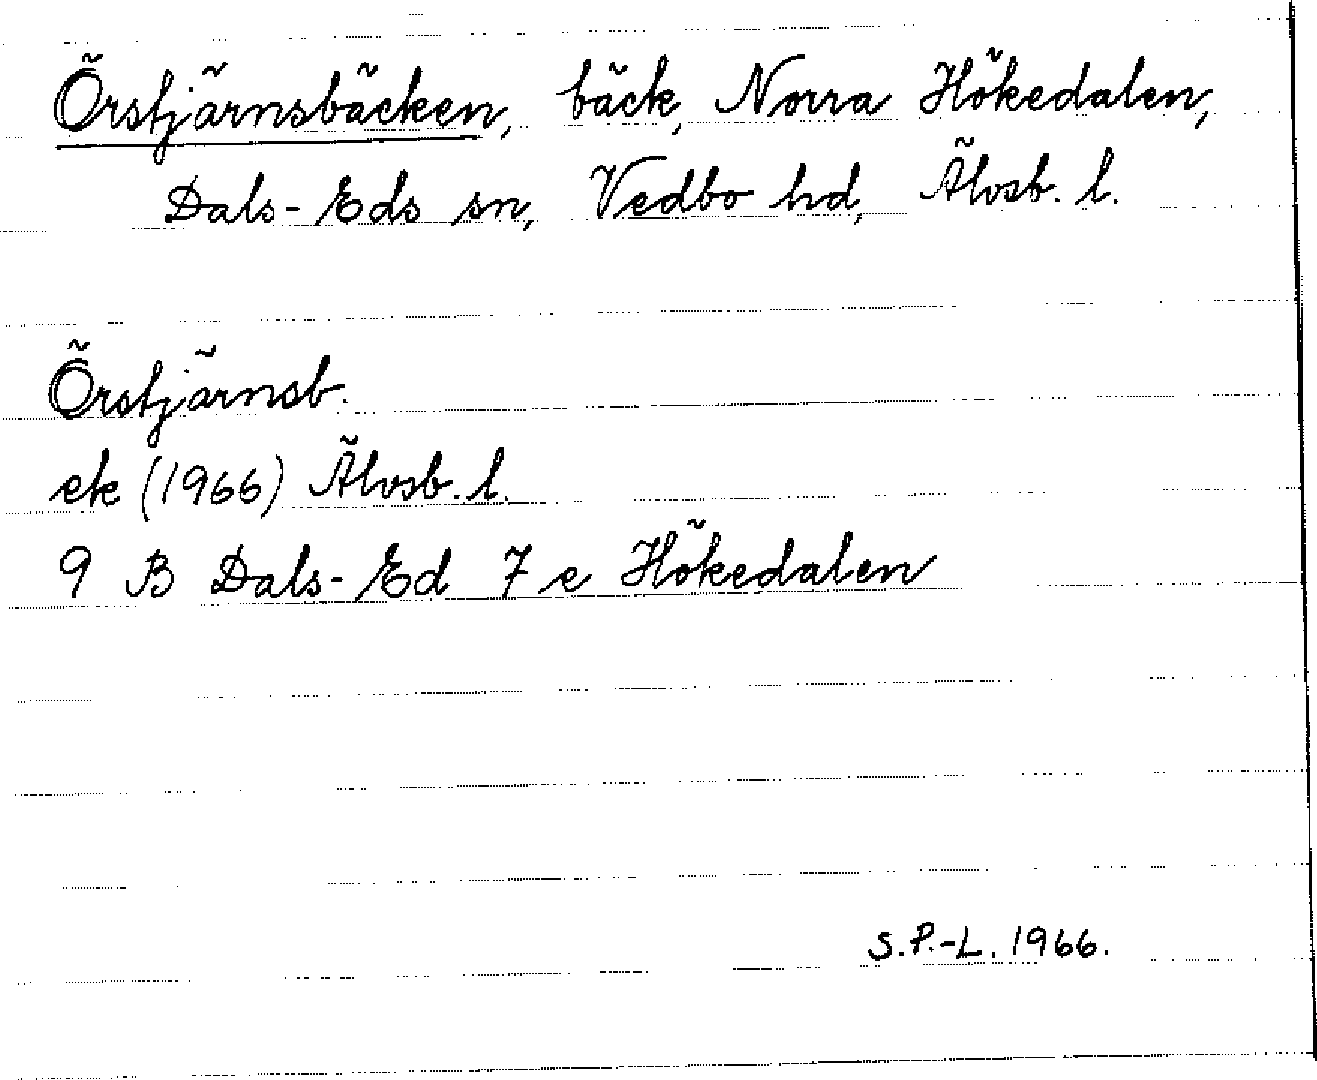 Örstjärnsbäcken, bäck, Norra Hökedalen,
Dals-Eds sn, Vedbo hd, Älvsb. l.
Örstjärnsb.
ek (1966) Älvsb. l.
9 B Dals-Ed 7 e Hökedalen
S.P.-L. 1966.